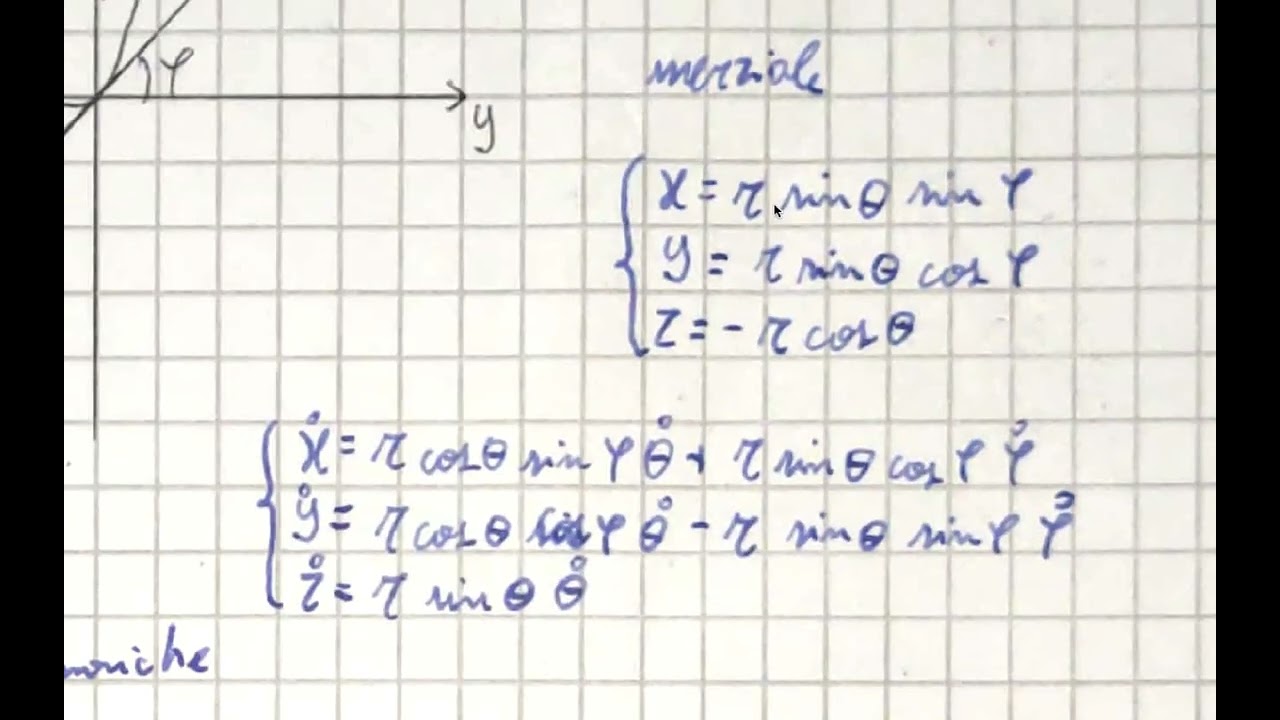 φ
y
inerziale
x = r sinθ sin φ
y = r sinθ cos φ
z = - r cosθ
ẋ = r cosθ sin φ θ̇ + r sinθ cos φ φ̇
ẏ = r cosθ cos φ θ̇ - r sinθ sin φ φ̇
ż = r sin θ θ̇